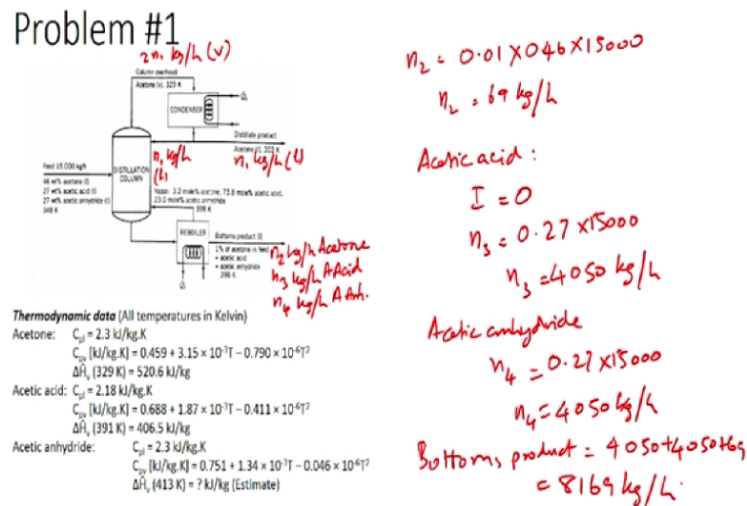 Problem #1
2n₁ kg/h (v)
Column overhead
Acetone (v), 329 K
CONDENSER
Distillate product
Acetone (l), 303 K
n₁ kg/h
(l)
n₁ kg/h (l)
Feed 15,000 kg/h
46 wt% acetone (l)
27 wt% acetic acid (l)
27 wt% acetic anhydride (l)
348 K
DISTILLATION
COLUMN
Vapor: 3.2 mole% acetone, 73.8 mole% acetic acid,
23.0 mole% acetic anhydride
398 K
REBOILER
Bottoms product (l)
1% of acetone in feed
+ acetic acid
+ acetic anhydride
398 K
n₂ kg/h Acetone
n₃ kg/h AAcid
n₄ kg/h AAnh.
Thermodynamic data (All temperatures in Kelvin)
Acetone: Cpl = 2.3 kJ/kg.K
Cpv [kJ/kg.K] = 0.459 + 3.15 × 10⁻³T – 0.790 × 10⁻⁶T²
ΔĤv (329 K) = 520.6 kJ/kg
Acetic acid: Cpl = 2.18 kJ/kg.K
Cpv [kJ/kg.K] = 0.688 + 1.87 × 10⁻³T – 0.411 × 10⁻⁶T²
ΔĤv (391 K) = 406.5 kJ/kg
Acetic anhydride: Cpl = 2.3 kJ/kg.K
Cpv [kJ/kg.K] = 0.751 + 1.34 × 10⁻³T – 0.046 × 10⁻⁶T²
ΔĤv (413 K) = ? kJ/kg (Estimate)
n₂ = 0.01 × 046 × 15000
n₂ = 69 kg/h
Acetic acid :
I = O
n₃ = 0.27 × 15000
n₃ = 4050 kg/h
Acetic anhydride
n₄ = 0.27 × 15000
n₄ = 4050 kg/h
Bottoms product = 4050+4050+69
= 8169 kg/h.